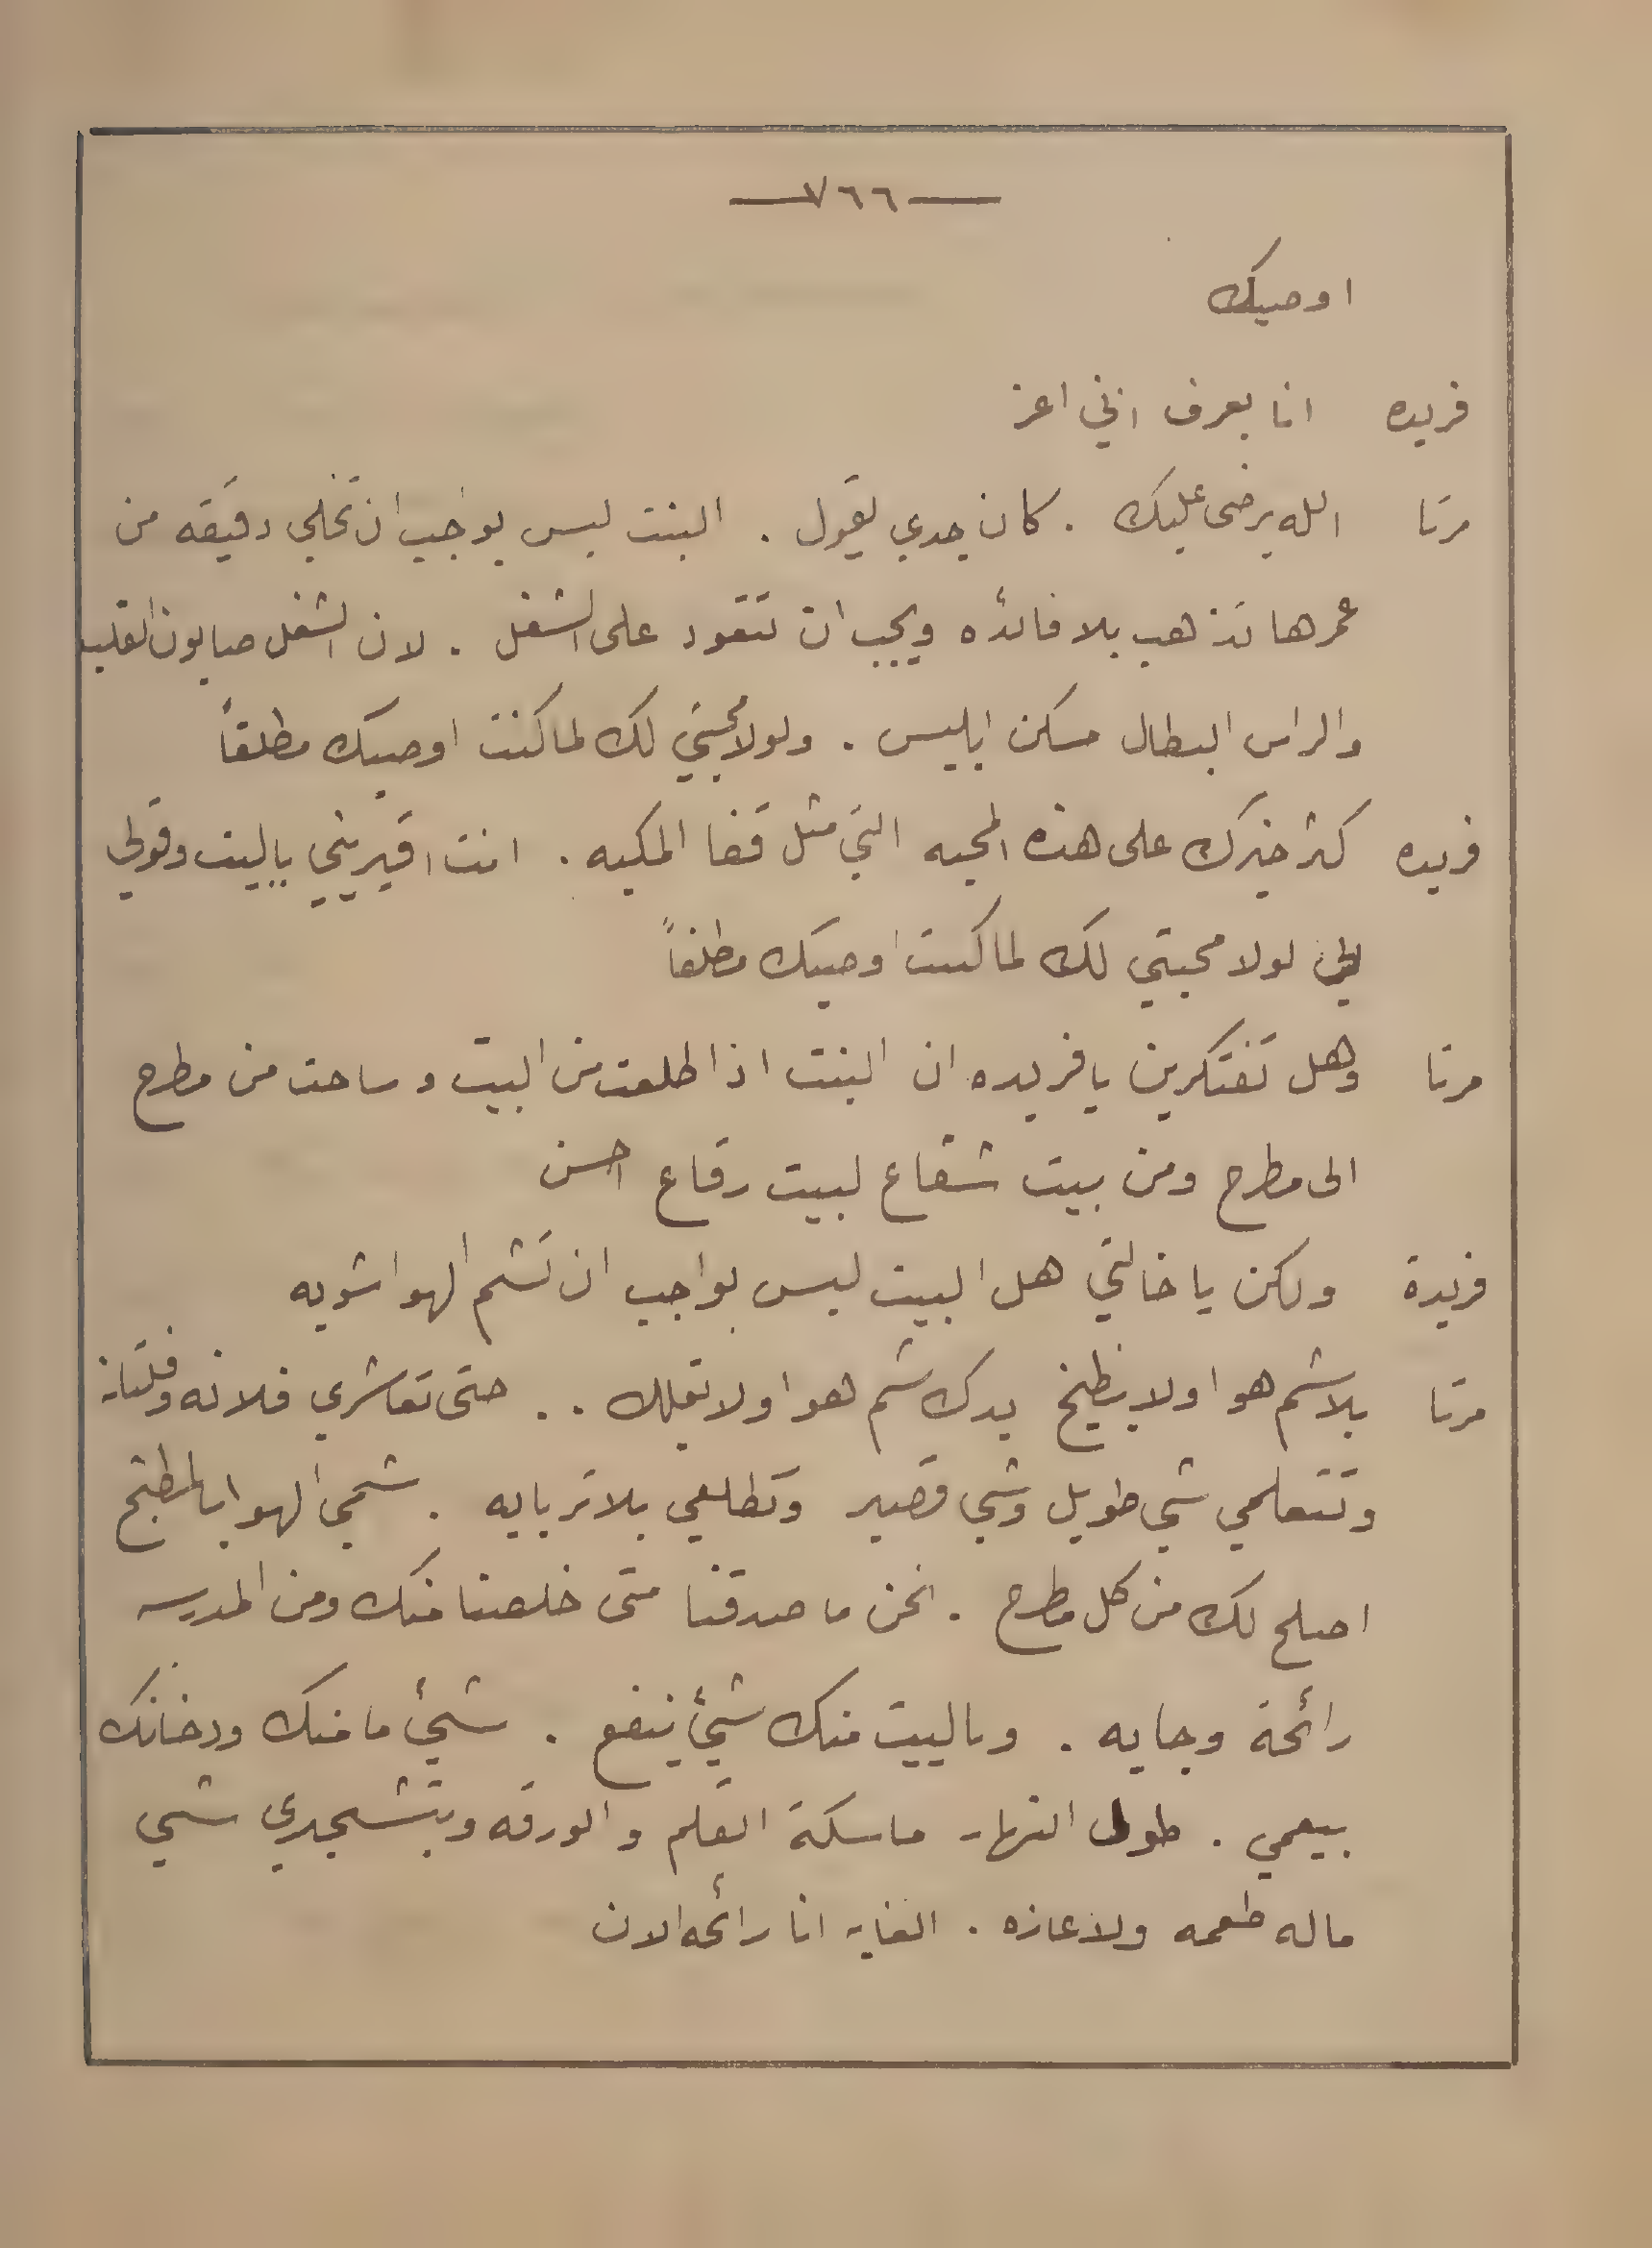 —٧٦٦—
اوصيك
فريده انا بعرف انني اعز
مرتا الله يرضى عليك . كان جدي يقول . البنت ليس بواجب ان تخلي دقيقه من
عمرها تذهب بلا فائده ويجب ان تتعود على الشغل . لان الشغل صابون القلب
والراس البطال مسكن ابليس . ولولا محبتي لك لما كنت اوصيك مطلقاً
فريده كثر خيرك على هذه المحبه التي مثل قفا المكبه . انت اقبريني بالبيت وقولي
لي لولا محبتي لك لما كنت اوصيك مطلقاً
مرتا وهل تفتكرين يا فريده ان البنت اذا طلعت من البيت وساحت من مطرح
الى مطرح ومن بيت شقاع لبيت رقاع احسن
فريدة ولكن يا خالتي هل البيت ليس بواجب ان تشم الهوا شويه
مرتا بلا شم هوا ولا بطيخ بدك شم هوا ولا تقلك . . حتى تعاشري فلانه وفلتانه
وتتعلمي شي طويل وشي قصير وتطلعي بلا تربايه . شمي الهوا بالمطبخ
اصلح لك من كل مطرح . نحن ما صدقنا متى خلصنا منك ومن المدرسه
رائحة وجايه . وبالبيت منك شئ ينفع . شئ ما منك ودخانك
بيعمي . طول النهار ماسكة القلم والورقه وبتشحبري شي
ماله طعمه ولا عازه . الغايه انا رائحه الان